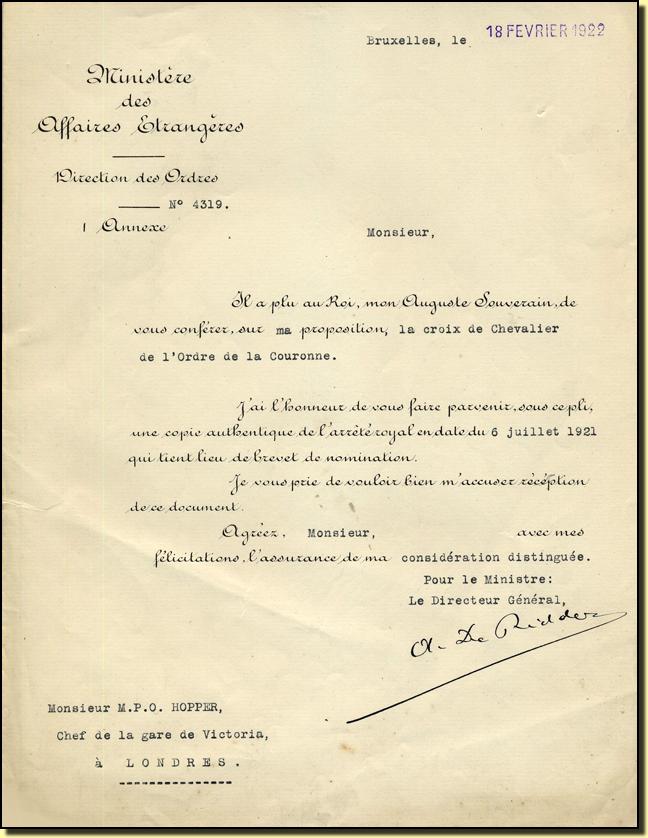 Bruxelles, le 18 FEVRIER 1922
Ministère
des
Affaires Etrangères
Direction des Ordres
N° 4319.
1 Annexe
Monsieur,
Il a plu au Roi, mon Auguste Souverain, de
vous conférer, sur ma proposition, la croix de Chevalier
de l'Ordre de la Couronne.
J'ai l'honneur de vous faire parvenir, sous ce pli,
une copie authentique de l'arrêté royal en date du 6 juillet 1921
qui tient lieu de brevet de nomination.
Je vous prie de vouloir bien m'accuser réception
de ce document.
Agréez, Monsieur, avec mes
félicitations, l'assurance de ma considération distinguée.
Pour le Ministre:
Le Directeur Général,
A. De Ridder
Monsieur M.P.O. HOPPER,
Chef de la gare de Victoria,
à LONDRES.